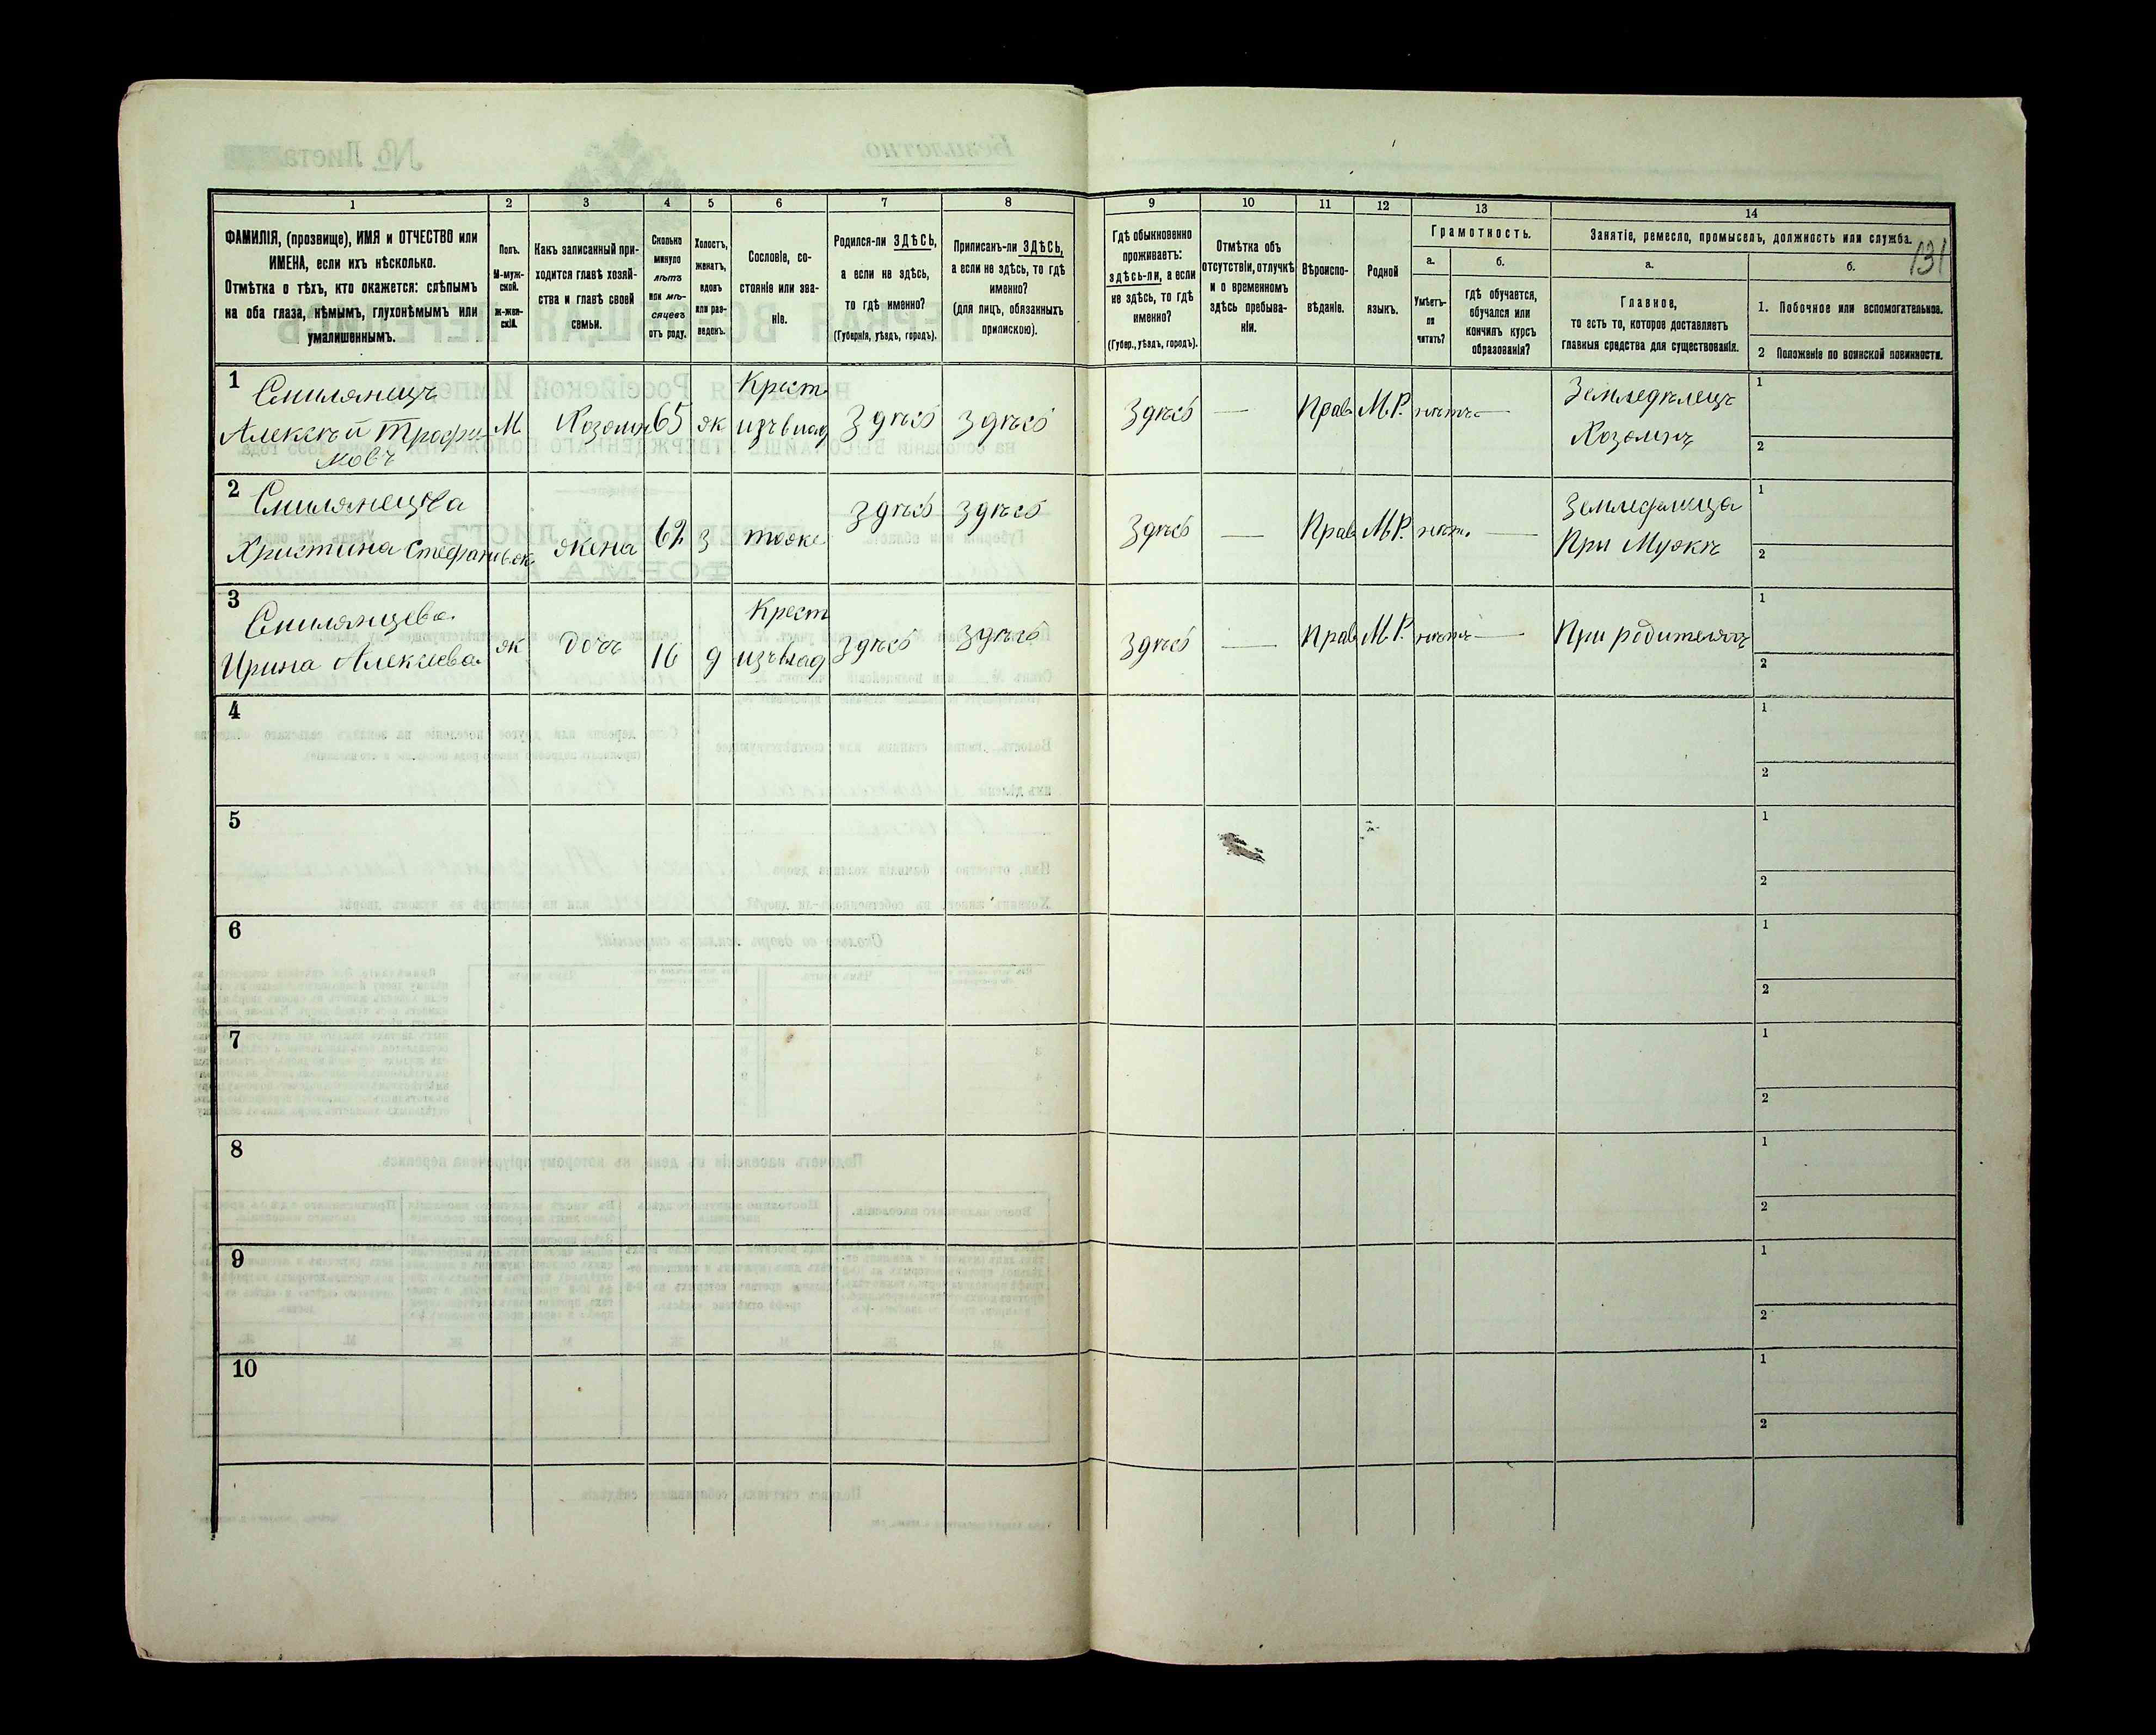 131
1 2 3 4 5 6 7 8 9 10 11 12 13 14
ФАМИЛІЯ, (прозвище), ИМЯ и ОТЧЕСТВО или
ИМЕНА, если ихъ нѣсколько.
Отмѣтка о тѣхъ, кто окажется: слѣпымъ
на оба глаза, нѣмымъ, глухонѣмымъ или
умалишеннымъ.
Полъ.
М-муж-
ской.
Ж-жен-
скій.
Какъ записанный при-
ходится главѣ хозяй-
ства и главѣ своей
семьи.
Сколько
минуло
лѣтъ
или мѣ-
сяцевъ
отъ роду.
Холостъ,
женатъ,
вдовъ
или раз-
веденъ.
Сословіе, со-
стояніе или зва-
ніе.
Родился-ли ЗДѢСЬ,
а если не здѣсь,
то гдѣ именно?
(Губернія, уѣздъ, городъ).
Приписанъ-ли ЗДѢСЬ,
а если не здѣсь, то гдѣ
именно?
(для лицъ, обязанныхъ
припискою).
Гдѣ обыкновенно
проживаетъ:
здѣсь-ли, а если
не здѣсь, то гдѣ
именно?
(Губер., уѣздъ, городъ).
Отмѣтка объ
отсутствіи, отлучкѣ
и о временномъ
здѣсь пребыва-
ніи.
Вѣроиспо-
вѣданіе.
Родной
языкъ.
Грамотность.
а.
Умѣетъ-
ли
читать?
б.
гдѣ обучается,
обучался или
кончилъ курсъ
образованія?
Занятіе, ремесло, промыселъ, должность или служба.
а.
Главное,
то есть то, которое доставляетъ
главныя средства для существованія.
б.
1. Побочное или вспомогательное.
2 Положеніе по воинской повинности.
1
Смилянецъ
Алексѣй Трофи-
мовъ
М
Хозяинъ
65
ж
Крест
изъ влад
Здѣсь
Здѣсь
Здѣсь
—
Прав
М.Р.
нѣтъ
—
Земледѣлецъ
Хозяинъ
1
2
2
Смилянецка
Христина Стефанов
ж
жена
62
З
тоже
Здѣсь
Здѣсь
Здѣсь
—
Прав
М.Р.
нѣтъ
—
При Мужѣ
1
2
3
Смилянцева
Ирина Алексиева
ж
дочь
16
д
Крест
изъ влад
Здѣсь
Здѣсь
Здѣсь
—
Прав
М.Р.
нѣтъ
—
При родителяхъ
1
2
4
1
2
5
1
2
6
1
2
7
1
2
8
1
2
9
1
2
10
1
2